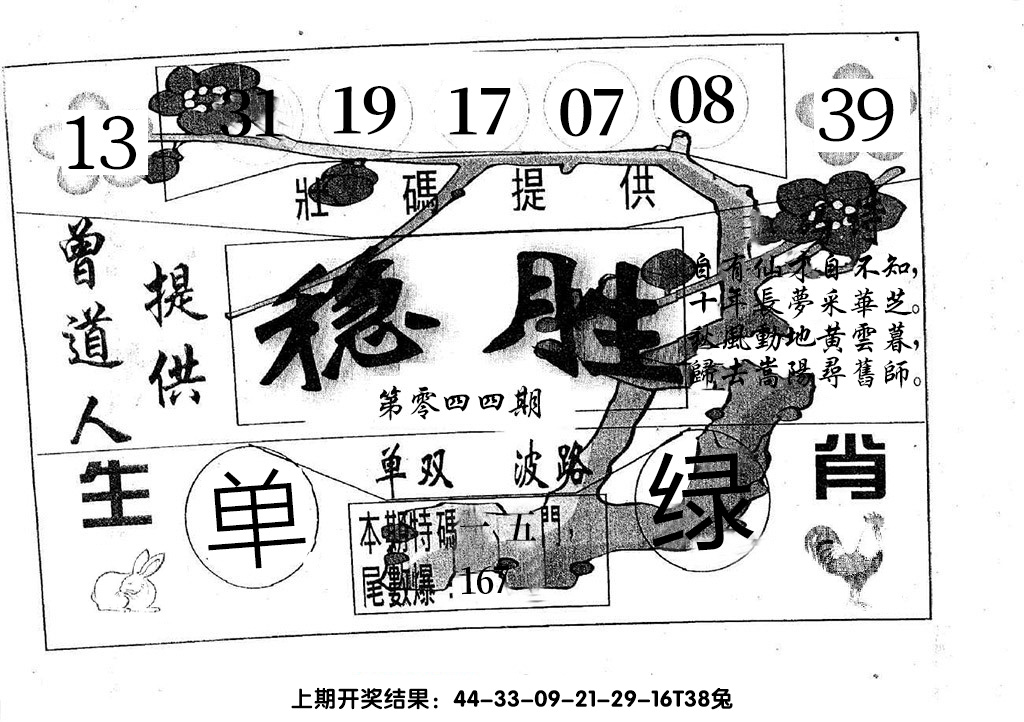 13 31 19 17 07 08 39
壯碼提供
曾道人
提供
稳胜
第零四四期
自有仙才自不知，
十年長夢采華芝。
秋風動地黃雲暮，
歸去嵩陽尋舊師。
单双 波路
生肖
单 绿
本期特碼一、五門，
尾數爆：167
上期开奖结果：44-33-09-21-29-16T38兔